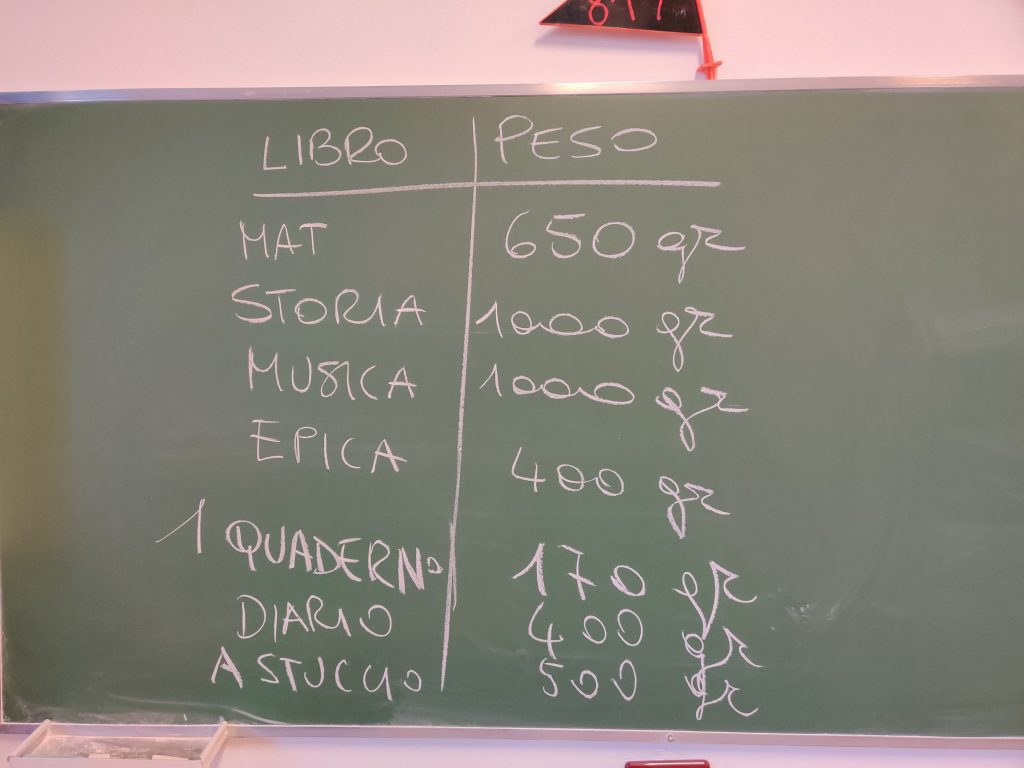 LIBRO PESO
MAT 650 gr
STORIA 1000 gr
MUSICA 1000 gr
EPICA 400 gr
1 QUADERNO 170 gr
DIARIO 400 gr
ASTUCCIO 500 gr